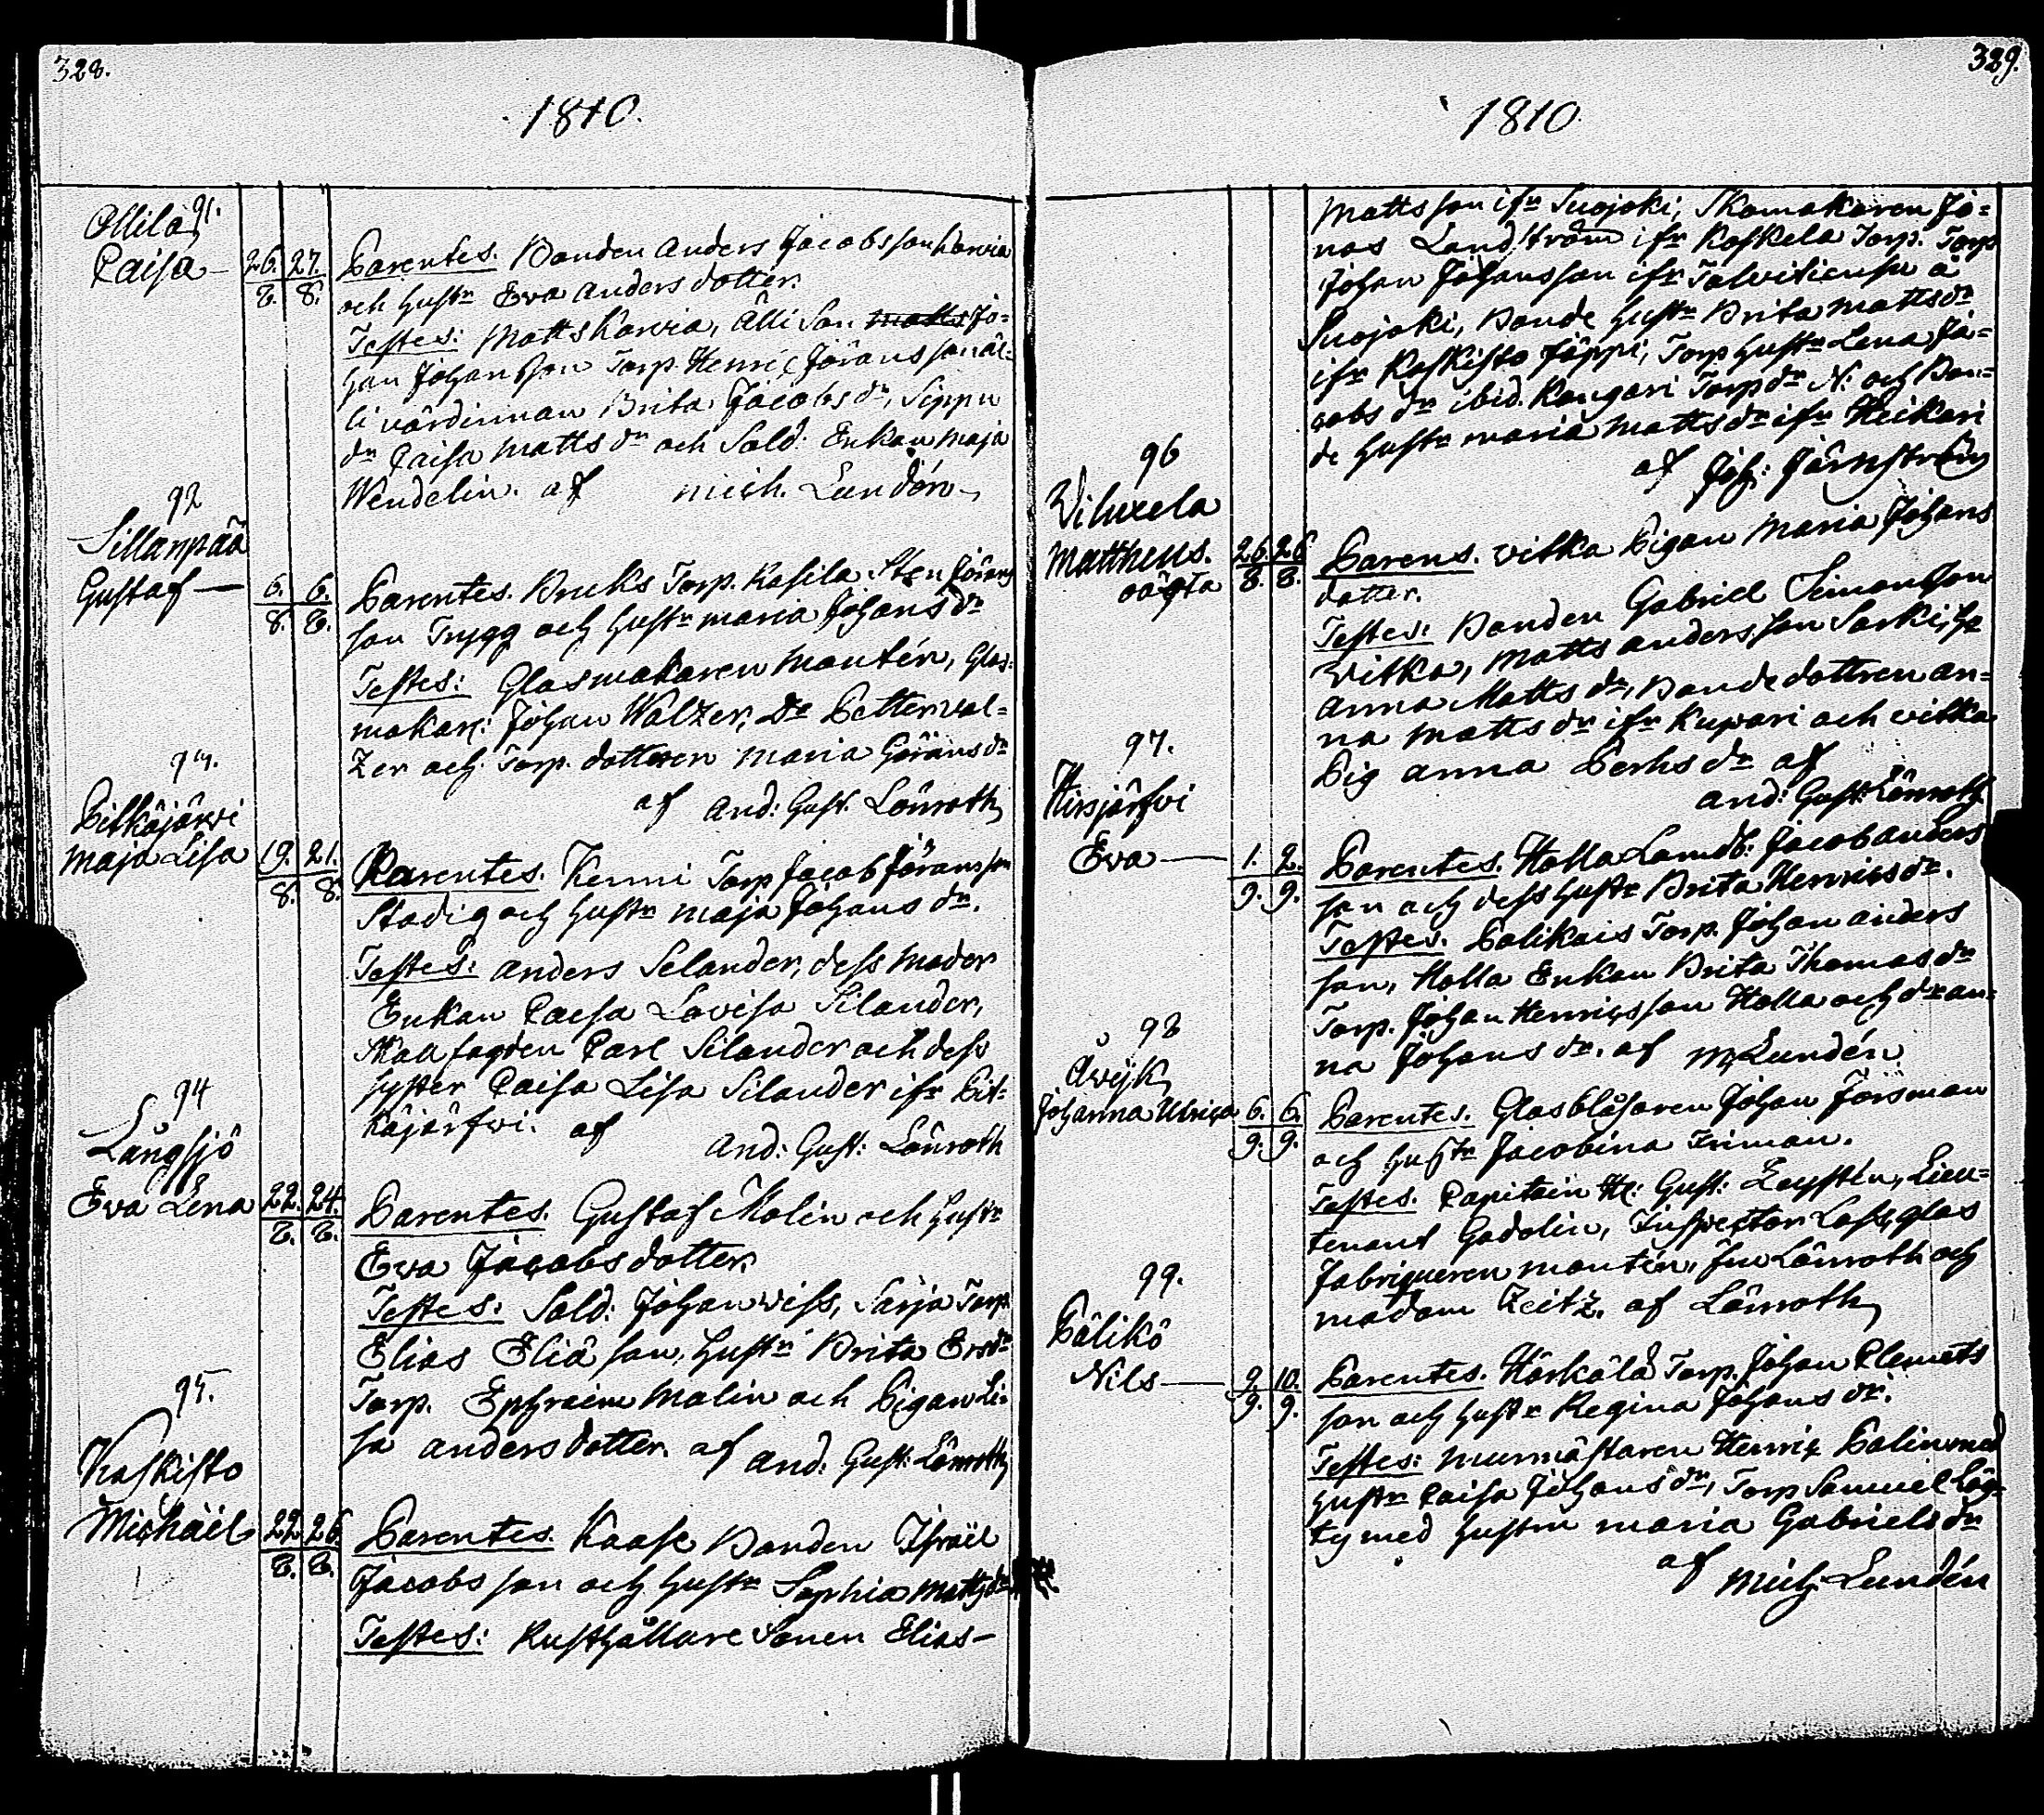 328.
1810.
91.
Ollila
Caisa — 26. 27.
8. 8.
Parentes. Bonden Anders Jacobsson Karvia
och hustr Eva Andersdotter.
Testes: Matts Karvia, Älli Son Matts Jo=
han Johansson Torp. Henric Jöransson äl=
li värdinnan Brita Jacobs dr, Sippu
dr Caisa Matts dr och Sold. Enkan Maja
Wendelin. af Mich. Lundén
92
Sillanpää
Gustaf — 6. 6.
8. 8.
Parentes. Bruks Torp. Kasila Sten Jörans
son Trygg och hustr Maria Johans dr
Testes: Glasmakaren Montén, Glas=
makar: Johan Walzer, Do Petter Wal=
zer och Torp. dotteren Maria Görans dr
af And: Gust. Lönroth
93.
Pitkäjärvi
Maja Lisa 19. 21.
8. 8.
Parentes. Kenni Torp Jacob Jöransson
Stadig och hustr Maja Johans dr.
Testes: Anders Selander, dess moder
Enkan Caisa Lovisa Silander,
Skallfogden Carl Silander och dess
syster Caisa Lisa Silander ifr Pit=
käjärfvi. af And: Gust: Lönroth
94
Långsjö
Eva Lena 22. 24.
8. 8.
Parentes. Gustaf Molin och hustr
Eva Jacobsdotter.
Testes: Sold: Johan Wiss, Särja Torp.
Elias Eliä son, hustr Brita Ersdr
Torp. Ephraim Malin och Pigan Li=
sa Andersdotter. af And: Gust: Lönroth
95.
Koskisto
Michäel 22 26.
8. 8.
Parentes. Kaase Bonden Israël
Jacobsson och hustr Sophia Matsdr
Testes: Rusthållare Sonen Elias
329.
1810
Mattsson ifr Suojoki, Skomakaren Jo=
nas Landström ifr Koskela Torp. Torp
Johan Johansson ifr Talvitiensu ä
Suojoki, Bonde hustr Brita Mattsdr
ifr Koskisto Jäppi, Torp hustr Lena Ja=
cobs dr ibid. Kangari Torp dr N: och Bon=
de hustr Maria Matts dr ifr Heikari
af Joh: Järnström
96
Viluxela
Mattheus. 26. 26
oägta 8. 8.
Parens. Vitka Pigan Maria Johans
dotter.
Testes: Bonden Gabriel Simonsson
Vitka, Matts Andersson Sarki, h
Anna Matts dr, Bonde dottren An=
na Matts dr ifr Kupari och Vitka
Pig Anna Perhs dr af
And: Gust: Lönroth
97.
Hirsjärfvi
Eva — 1. 2.
9. 9.
Parentes. Halla Landb: Jacob Anders
son och dess hustr Brita Henrics dr.
Testes. Palikais Torp. Johan Anders
son, Halla Enkan Brita Thomas dr
Torp. Johan Henricsson Halla och dr An=
na Johans dr. af M. Lundén
98
Åvijk
Johanna Ulrica 6. 6.
9. 9.
Parentes. Glasblåsaren Johan Forsman
och hustr Jacobina Iriman.
Testes. Capitain H: Gust: Zeysten, Lieu=
tenant Gadolin, Inspector Lass, glas
fabriqueren Montén, fru Lönroth och
Madam Zeitz. af Lönroth
99.
Pälikö
Nils — 9. 10.
9. 9.
Parentes. Härkälä Torp. Johan Clemets
son och hustr Regina Johans dr.
Testes: Murmästaren Henric Palin med
hustr Caisa Johans dr, Torp Samuel Läg=
ty med hustru Maria Gabriels dr
af Mich. Lundén